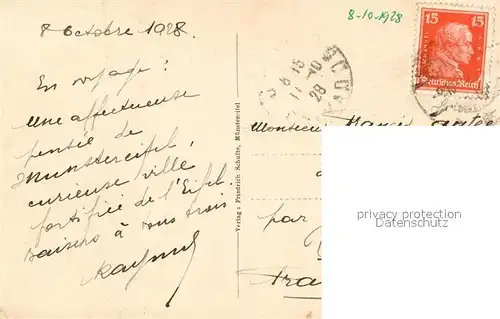 8 Octobre 1928.
En voyage :
Une affectueuse
pensée de
Munstereifel,
curieuse ville
fortifiée de l'Eifel.
Baisers à tous trois
Raymond
Verlag: Friedrich Schulte, Münstereifel
8-10-1928
15 15
Deutsches Reich
Monsieur
par
privacy protection
Datenschutz